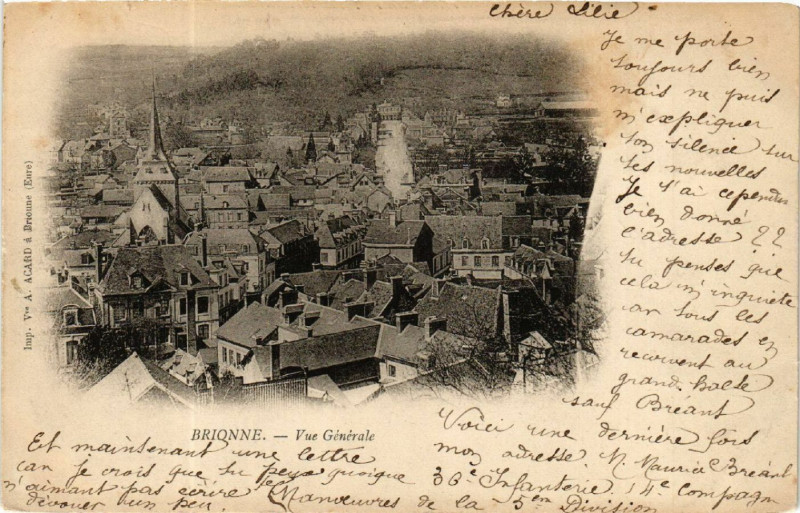 Chère Lilie
Je me porte
toujours bien
mais ne puis
m'expliquer
ton silence sur
tes nouvelles
Je t'ai cependant
bien donné
l'adresse ??
tu penses que
cela m'inquiète
car tous les
camarades en
reçoivent au
grand halte
sauf Bréant
Voici une dernière fois
mon adresse M. Maurice Bréant
36e Infanterie 4e Compagn
Manœuvres de la 5en Division
Et maintenant une lettre
car je crois que tu peux quoique
n'aimant pas écrire
dévouer un peu.
BRIONNE. — Vue Générale
Imp. Vve A. ACARD à Brionne (Eure)